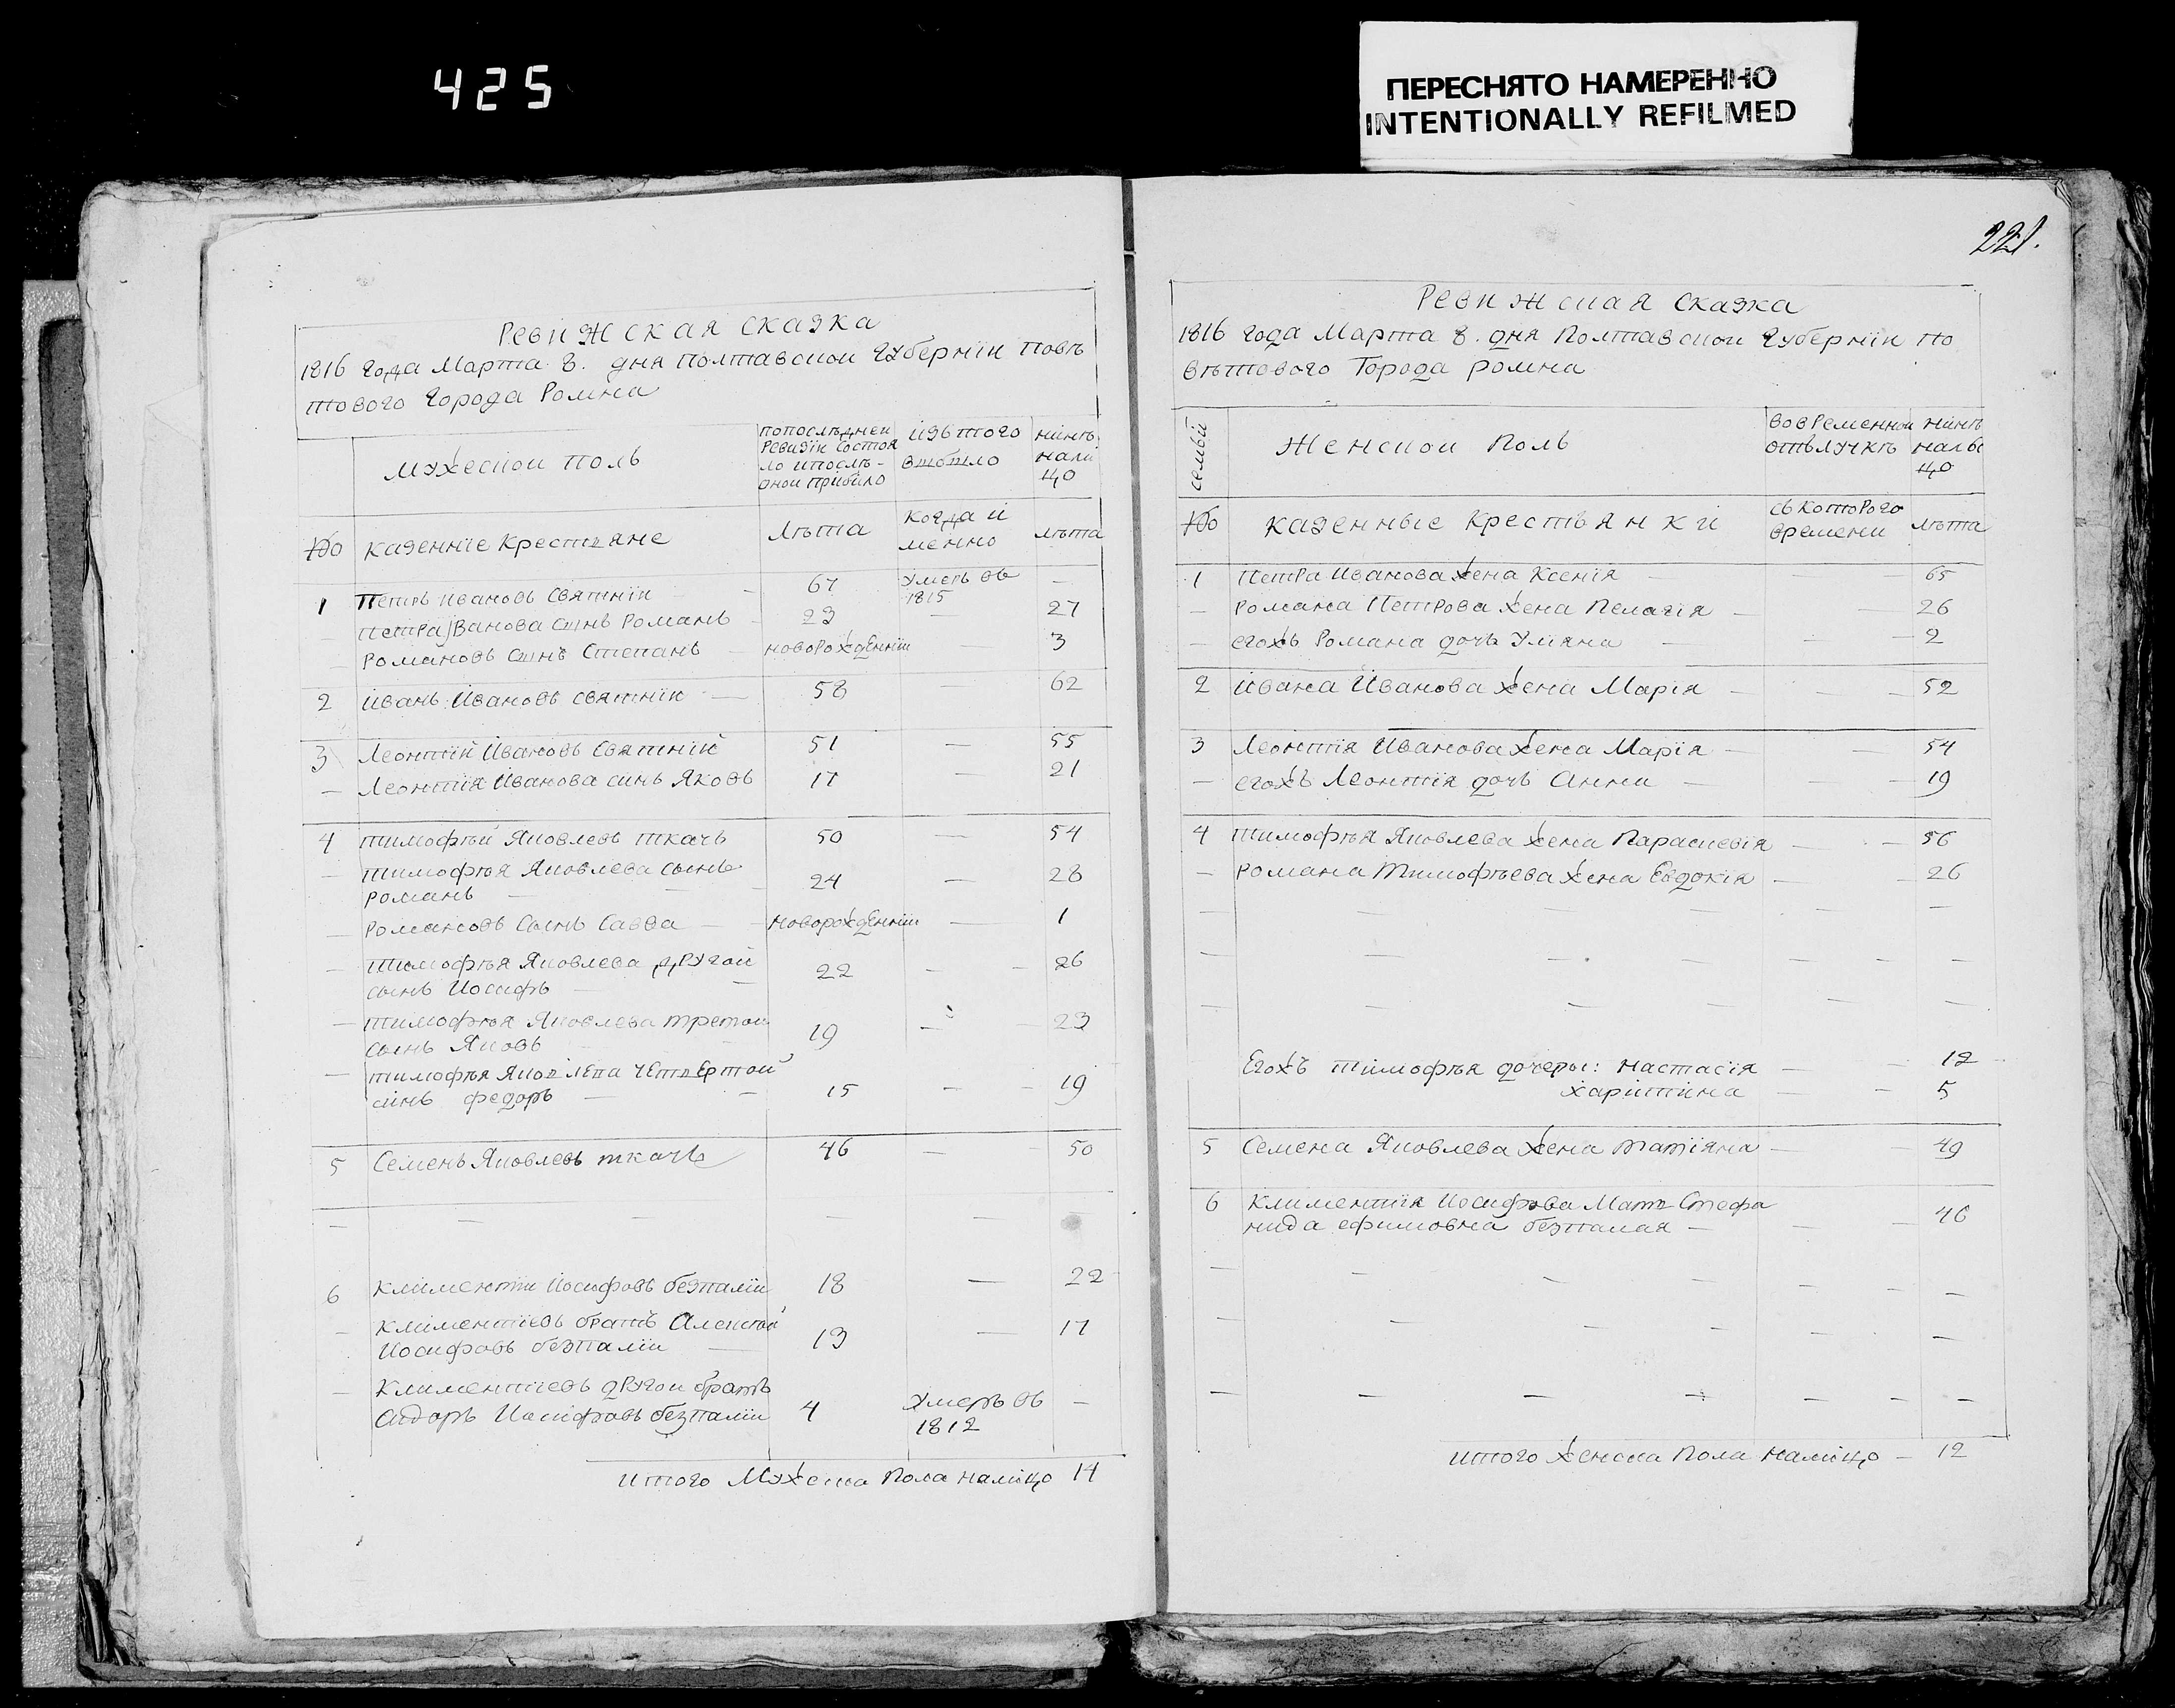 425
ПЕРЕСНЯТО НАМЕРЕННО
INTENTIONALLY REFILMED
221.
Ревижская сказка
1816 года Марта 8. дня полтавской губерніи повѣ
тового города Ромна
мужеской полъ
попослѣдней
Ревизіи состоя
ло ипослѣ-
оной прибило
изътого
вибило
нинѣ
нали
цо
№
казенніе крестяне
лѣта
когда и
менно
лѣта
1 Петръ Ивановъ Святній 67 умеръ въ 1815 —
— Петра Иванова синъ Романъ — 23 — 27
— Романовъ синъ Степанъ — новорожденній — 3
2 Иванъ Ивановъ Святній — 58 — 62
3 Леонтій Ивановъ Святній 51 — 55
— Леонтія Иванова синъ Яковъ 17 — 21
4 Тимофѣй Яковлевъ ткачъ 50 — 54
— Тимофѣя Яковлева сынъ
Романъ — 24 — 28
— Романовъ сынъ Савва — новорожденній — 1
— Тимофѣя Яковлева другой
сынъ Иосифъ — 22 — 26
— Тимофѣя Яковлева третой
сынъ Яковъ 19 — 23
— Тимофѣя Яковлева четвертой
синъ федоръ — 15 — 19
5 Семенъ Яковлевъ ткачъ 46 — 50
6 Климентій Иосифовъ безпалій 18 — 22
— Климентіевъ братъ Алексей
Иосифовъ безпалій — 13 — 17
— Климентіевъ другой братъ
Сидоръ Иосифовъ безпалій 4 умеръ въ 1812 —
итого Мужеска Пола налицо 14
Ревижская сказка
1816 года Марта 8. дня Полтавской губерніи по
вѣтового Города ромна
семьи
Женской полъ
вовременной
отълучкѣ
нинѣ
нали
цо
№
казенные Крестьянки
съ которого
времени
лѣта
1 Петра Иванова жена Ксенія — — 65
— Романа Петрова жена Пелагія — — 26
— егожъ Романа дочь Уляна — — 2
2 Ивана Иванова жена Марія — — 52
3 Леонтія Иванова жена Марія — — 54
— егожъ Леонтія дочь Анна — — 19
4 Тимофѣя Яковлева жена Параскевія — — 56
— Романа Тимофѣева жена Евдокія — — 26
Егожъ Тимофѣя дочеры: Настасія — — 12
харитина — — 5
5 Семена Яковлева жена татіяна — — 49
6 Климентія Иосифова Мать Стефа
нида ефимовна безпалая — — 46
итого женска Пола налицо — 12